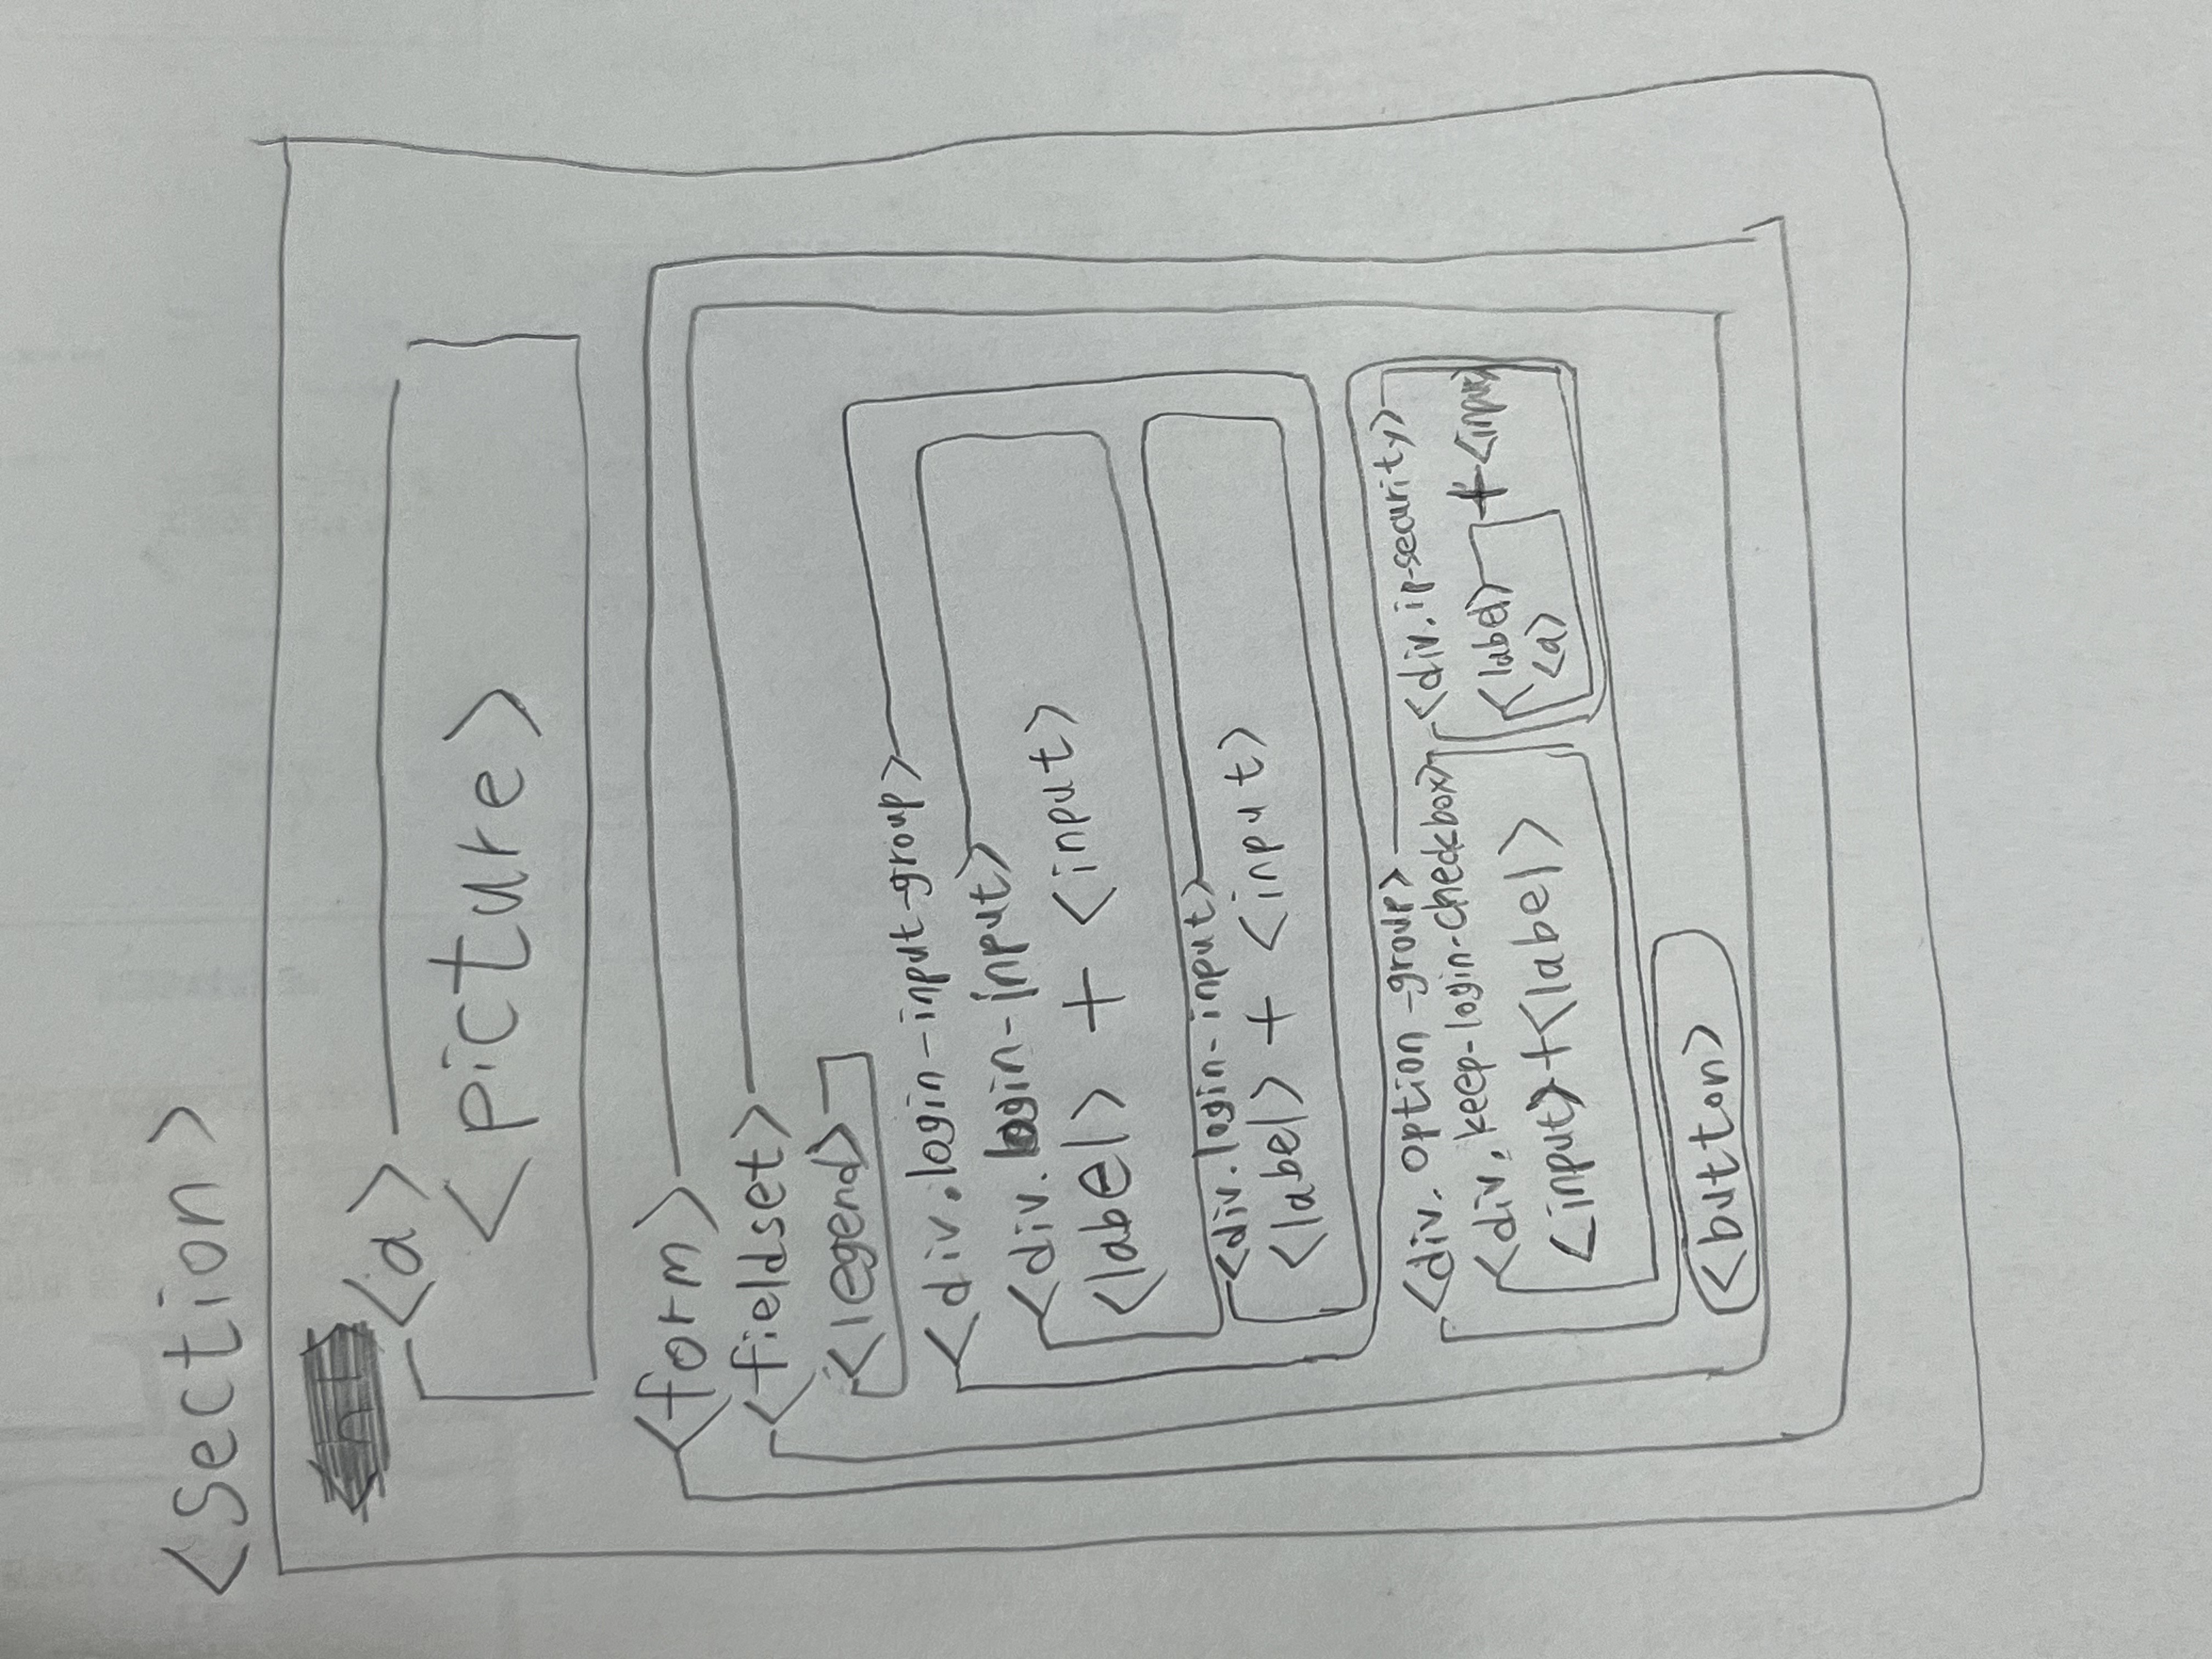 <section>
<a>
<picture>
<form>
<fieldset>
<legend>
<div.login-input-group>
<div.login-input>
<label> + <input>
<div.login-input>
<label> + <input>
<div.option-group>
<div.keep-login-checkbox>
<input> + <label>
<div.ip-security>
<label> + <input>
<a>
<button>